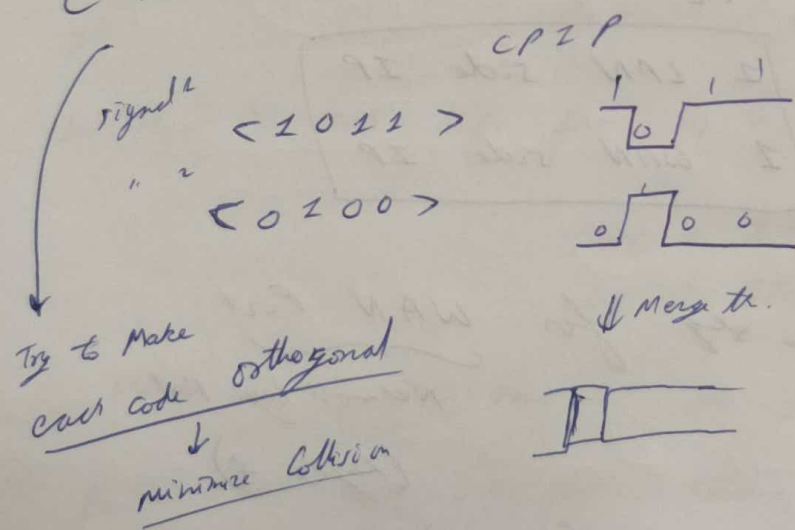 CPIP
signal 1 <1011>
1 0 1 1
" 2 <0100>
0 1 0 0
⇓ Merge th.
Try to Make
each code orthogonal
↓
minimize Collision